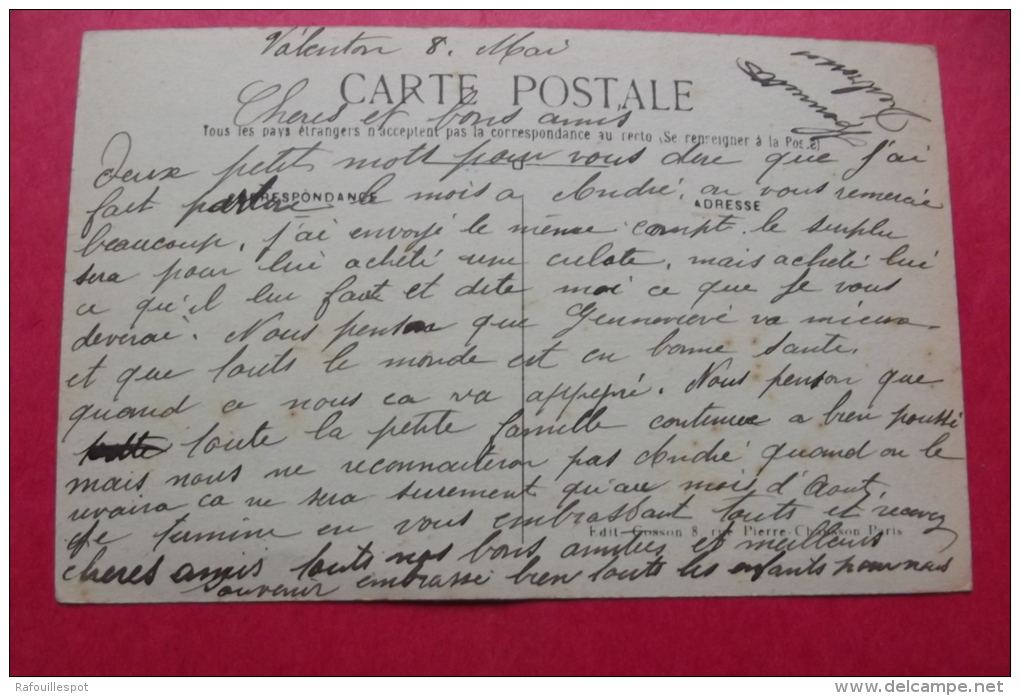 Valenton 8. Mai
CARTE POSTALE
Cheres et bons amis
Tous les pays étrangers n'acceptent pas la correspondance au recto (Se renseigner à la Poste)
Deux petit mott pour vous dire que j'ai
CORRESPONDANCE
ADRESSE
fait le mois a André, on vous remercie
beaucoup, j'ai envoyé le même compt. le surplu
sera pour lui acheté une culote, mais acheté lui
ce qu'il lui faut et dite moi ce que je vous
deverai. Nous penson que Gennevieve va mieux
et que touts le monde est en bonne santé,
quand a nous ca va appeprè. Nous penson que
toute la petite famille continue a bien poussé
mais nous ne reconnaiteron pas André quand on le
revaira ca ne sera surement qu'au mois d'Aout,
Je termine en vous embrassant touts et recevez
Edit. Gosson 8, rue Pierre-Chausson Paris
cheres amis touts nos bons amities et meilleurs
souvenir embrassé bien touts les enfants pour nous
Rafouillespot
delcampe.net